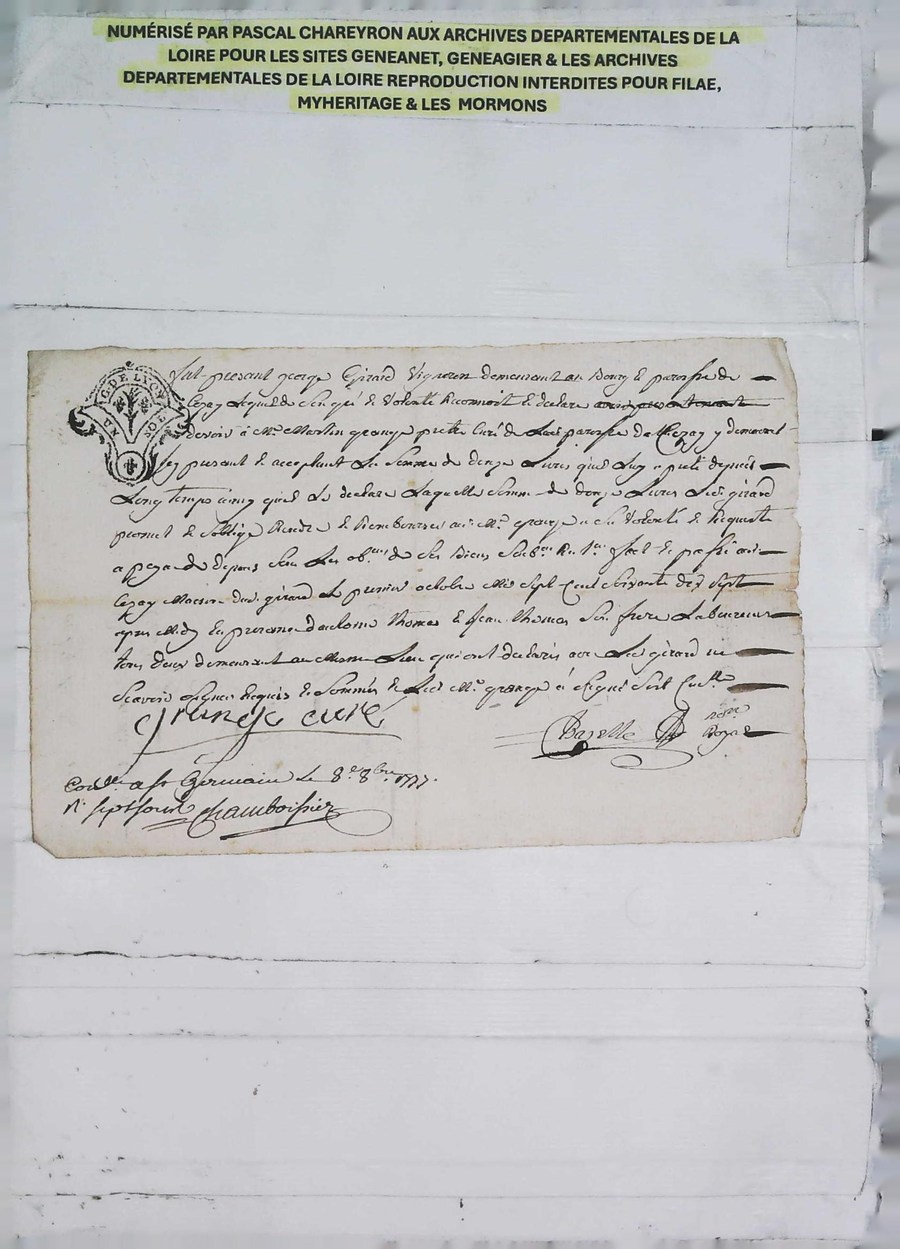 NUMÉRISÉ PAR PASCAL CHAREYRON AUX ARCHIVES DEPARTEMENTALES DE LA
LOIRE POUR LES SITES GENEANET, GENEAGIER & LES ARCHIVES
DEPARTEMENTALES DE LA LOIRE REPRODUCTION INTERDITES POUR FILAE,
MYHERITAGE & LES MORMONS
G. DE LYON
UN SOL
fut present george Girard Vigneron demeurant au Bourg et paroisse de
Cezay lequel de Son gré et Volonté Reconnoit et declare
devoir à Mr Martin grange pretre Curé de la paroisse de Cezay y demeurant
icy present et acceptant la Somme de douze Livres qu'il luy a preté depuis
Long temps ainsy qu'il le declare Laquelle Somme de douze Livres led. girard
promet et S'oblige Rendre et Rembourser aud. Mr. grange a Sa Volonté et Requeste
a peyne de depens Sou Les obons de Ses Biens fait et passé aud.
Cezay Maison dud. girard Le premier octobre Mil Sept Cent Soixante dix Sept
apres Midy En presence d'antoine thomas et Jean thomas Son frere Laboureurs
tous deux demeurant au Meme Lieu qui ont declarés avec Led. girard ne
Scavoir Signer Enquis et Sommés et Led. Mr. grange à Signé
grange curé
Chazelle nore Royal
Conlle a St Germain le 8e 8bre 1777.
R. sept sous Chamboissier